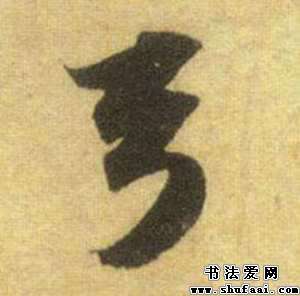 弓
书法爱网
www.shufaai.com